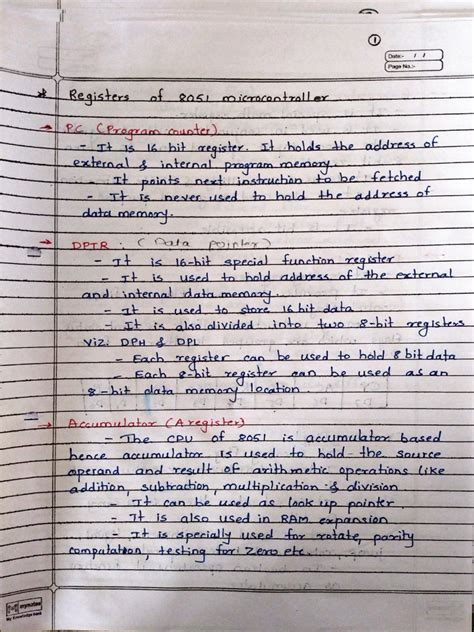 ①
Date:- / /
Page No.:-
* Registers of 8051 microcontroller
→ P.C. (Program counter)
- It is 16 bit register. It holds the address of
external & internal program memory.
- It points next instruction to be fetched
- It is never used to hold the address of
data memory.
→ DPTR : (Data pointer)
- It is 16-bit special function register
- It is used to hold address of the external
and internal data memory.
- It is used to store 16 bit data
- It is also divided into two 8-bit registers
viz: DPH & DPL
- Each register can be used to hold 8 bit data
- Each 8-bit register can be used as an
8-bit data memory location.
→ Accumulator (A register)
- The CPU of 8051 is accumulator based
hence accumulator is used to hold the source
operand and result of arithmetic operations like
addition, subtraction, multiplication & division
- It can be used as look up pointer.
- It is also used in RAM expansion
- It is specially used for rotate, parity
computation, testing for zero etc.